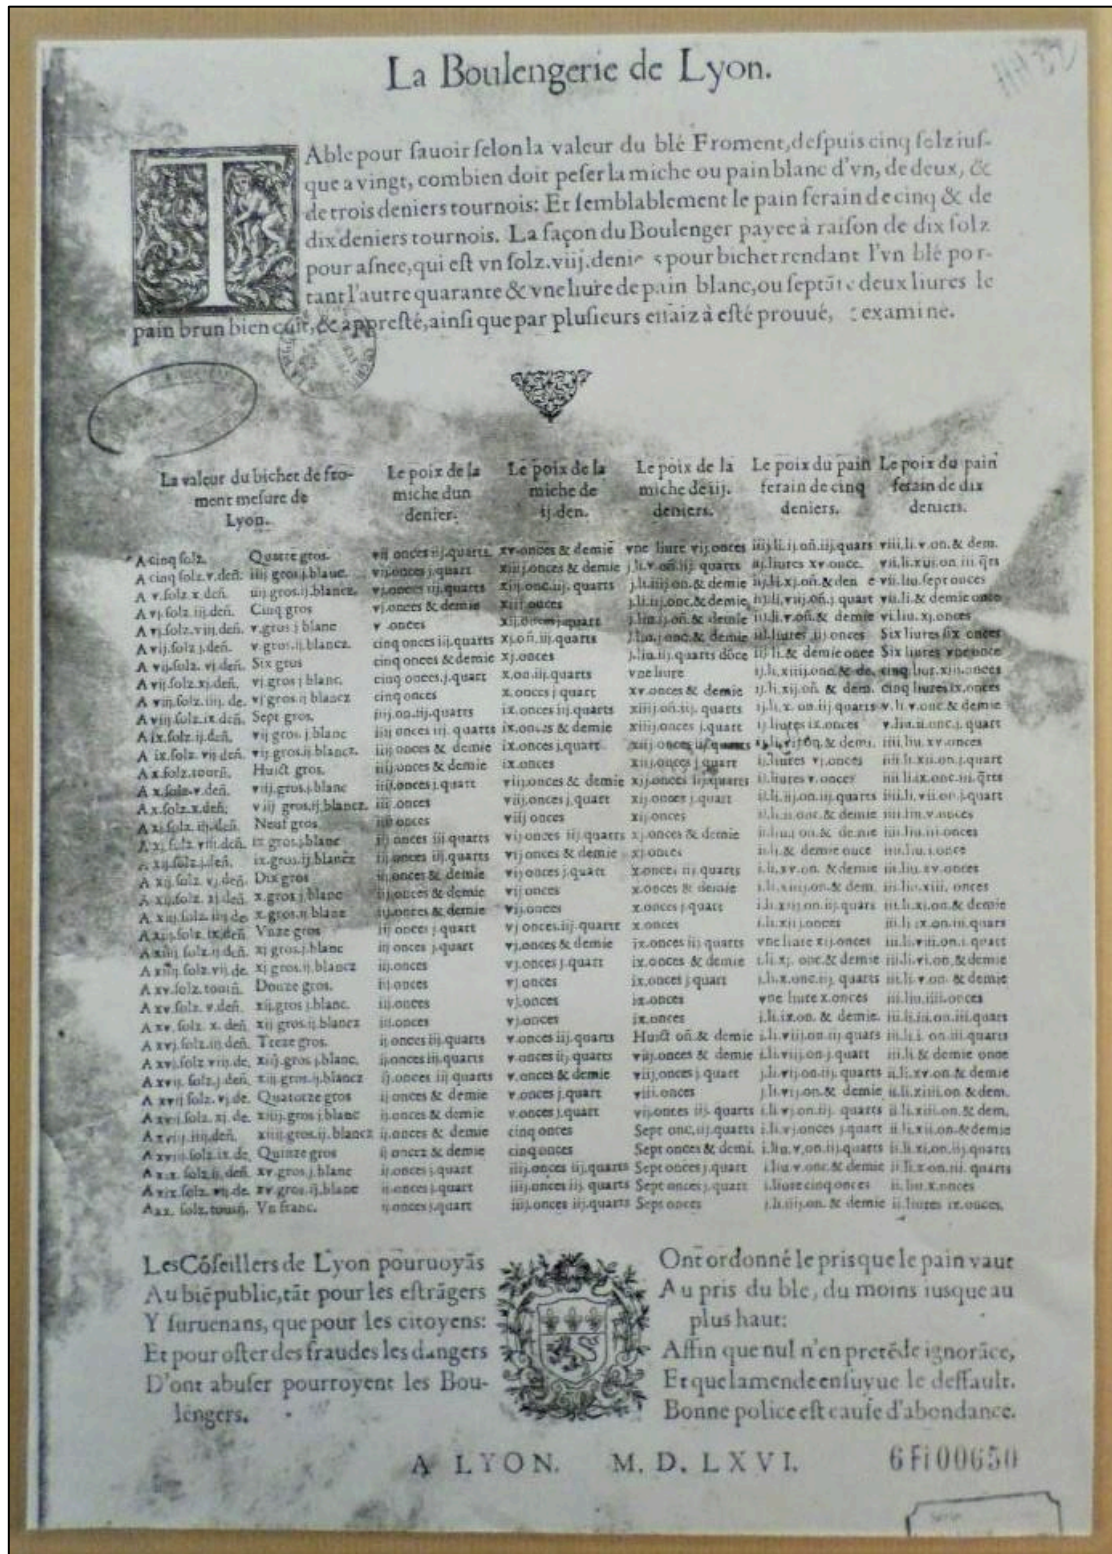 La Boulengerie de Lyon.
TAble pour ſauoir ſelon la valeur du blé Froment, deſpuis cinq ſolz iuſ-
que a vingt, combien doit peſer la miche ou pain blanc d'vn, de deux, &
de trois deniers tournois: Et ſemblablement le pain ferain de cinq & de
dix deniers tournois. La façon du Boulenger payee à raiſon de dix ſolz
pour aſnee, qui eſt vn ſolz. viij. pour bichet rendant l'vn blé por-
tant l'autre quarante & vne liure de pain blanc, ou deux liures le
pain brun bien cuit, & appreſté, ainſi que par pluſieurs à eſté prouué, examiné.
La valeur du bichet de fro-
ment meſure de
Lyon.
Le poix de la
miche dun
denier.
Le poix de la
miche de
ij.den.
Le poix de la
miche de iij.
deniers.
Le poix du pain
ferain de cinq
deniers.
Le poix du pain
ferain de dix
deniers.
A cinq ſolz. Quatre gros. vii onces iij.quarts. xv.onces & demie vne liure vij.onces iiij.li.ij.oñ.iij.quars viii.li.v.on.& dem.
A cinq ſolz.v.deñ. iiij gros.j.blanc. vij.onces j.quart xiiij.onces & demie ij.liures xv.once.
A v.ſolz x.deñ. iiij gros.ij.blancz. vij.liu.ſept onces
A vj.ſolz.iij.deñ. Cinq gros vj.onces & demie xiij onces vii.li.& demie once
A vj.ſolz.viij deñ. v.gros j blanc v.onces vi.liu.xj.onces
A vij.ſolz j.deñ. v.gros.ij.blancz. cinq onces iij.quarts xj.oñ.iij.quarts Six liures ſix onces
A vij.ſolz. vj.deñ. Six gros cinq onces & demie xj.onces iij li.& demie once Six liures vne once
A vij.ſolz.xj.deñ. vj gros j blanc. cinq onces.j.quart x.on.iij.quarts vne liure cinq liur.xiij.onces
A viij.ſolz.iiij.de. vj gros ij blancz cinq onces x.onces j quart xv.onces & demie ij.li.xij.oñ. & dem. cinq liures ix.onces
A viij.ſolz.ix.deñ. Sept gros. iiij.on.iij.quarts ix.onces iij.quarts xiiij.oñ.iij.quarts v.li.v.onc.& demie
A ix.ſolz.ij.deñ. vij gros.j.blanc iiij onces iij.quarts ix.onces & demie xiiij.onces j.quart ij liures ix.onces v.liu.ii.onc.j.quart
A ix.ſolz.vij deñ. vij gros.ij.blancz. iiij onces & demie ix.onces j.quart iiii.liu.xv.onces
A x.ſolz.tourñ. Huict gros. iiij.onces & demie ix.onces xiij.onces j quart ij.liures vj.onces iiii.li.xii.on.j.quart
A x.ſolz.v.deñ. viij.gros.j.blanc iiij.onces j.quart viij.onces & demie xij.onces iij.quarts ii.liures v.onces
A x.ſolz.x.deñ. viij gros.ij.blancz. iiij.onces viij.onces j.quart xij.onces j.quart ii.li.iij.on.iij.quarts iiii.li.vii.on.j.quart
A xj.ſolz.iij.deñ. Neuf gros iiij onces viij onces xij.onces iiii.liu.v.onces
ix gros.j.blanc iij onces iij quarts vij onces iij.quarts xj.onces & demie iiii.liu.iii.onces
ix.gros.ij.blancz iij onces iij.quarts vij onces & demie xj.onces ii.li.& demie once iiii.liu.i.once
A xij.ſolz. vj.deñ. Dix gros iij.onces & demie vij onces j.quart x.onces iij quarts i.li.xv.on.& demie iii.liu.xv.onces
A xij.ſolz. xj deñ. x.gros j.blanc iij.onces & demie vij onces x.onces & demie iii.liu.xiii. onces
x.gros.ij blanc iij.onces & demie vij.onces x.onces j.quart iii.li.xj.on.& demie
Vnze gros iij onces j.quart vj onces.iij.quarts x.onces i.li.xii j.onces iii.li ix.on.iii.quarts
xj gros.j.blanc iij onces j.quart vj.onces & demie ix.onces iij quarts vne liure xij.onces iii.li.viii.on.i.quart
A xiiij.ſolz.vij.de. xj gros.ij.blancz iij.onces vj.onces j.quart ix.onces & demie i.li.xj. onc.& demie iii.li.vi.on.& demie
A xv.ſolz.tourñ. Douze gros. iij.onces vj onces ix.onces j quart i.li.x.onc.iij. quarts iii.li.v.on.& demie
A xv.ſolz. v.deñ. xij.gros j.blanc. iij.onces vj.onces ix.onces vne liure x.onces iii.liu.iiii.onces
A xv.ſolz. x. deñ. xij gros.ij.blancz iij.onces vj.onces ix.onces i.li.ix.on.& demie. iii.li.iii.on.iii.quars
A xvj.ſolz.iij deñ. Treze gros. ij.onces iij.quarts v.onces iij.quarts Huict oñ.& demie i.li.viij.on.iij.quars iii.li.i.on.iii.quarts
A xvj.ſolz viij.de. xiij.gros j.blanc. ij.onces iij.quarts v.onces iij.quarts viij.onces & demie i.li.viij.on.j.quart iii.li & demie once
A xvij.ſolz.j.deñ. xiij.gros.ij.blancz ij.onces iij quarts v.onces & demie viij.onces j.quart j.li.vij.on.iij.quarts ii.li.xv.on.& demie
A xvij ſolz.vj.de. Quatorze gros ij onces & demie v.onces j.quart viii.onces j.li.vij.on.& demie ii.li.xiiii.on.& dem.
A xvij.ſolz. xj. de. xiiij.gros j blanc ij.onces & demie v.onces j.quart vij.onces iij.quarts i.li.vj.on.iij. quarts ii.li.xiii.on.& dem.
xiiij gros.ij. blancz ij.onces & demie cinq onces Sept onc.iij.quarts i.li.vj.onces j.quart ii li.xii.on.&demie
A xviij.ſolz.ix.de. Quinze gros ij onces & demie cinq onces Sept onces & demi. i.liu.v.on.iij.quarts ii.li.xi.on.iij.quarts
A xix.ſolz.ij.deñ. xv.gros.j.blanc ij.onces j.quart iiij.onces iij.quarts Sept onces j.quart i.liu v.onc.& demie ii.li.x.on.iii. quarts
A xix.ſolz. vij.de. xv.gros.ij.blanc ij.onces j.quart iiij.onces iij.quarts Sept onces j.quart i.liure cinq onces ii.liu.x.onces
A xx. ſolz.tourñ. Vn franc. ij.onces j.quart iiij.onces iij.quarts Sept onces j.li.iiij.on.& demie ii.liures ix.onces.
Les Cõſeillers de Lyon pouruoyãs
Au biẽ public, tãt pour les eſtrãgers
Y ſuruenans, que pour les citoyens:
Et pour oſter des fraudes les dangers
D'ont abuſer pourroyent les Bou-
lengers.
Ont ordonné le pris que le pain vaut
Au pris du ble, du moins iusque au
plus haut:
Affin que nul n'en pretẽde ignorãce,
Et que lamende enſuyue le deffault.
Bonne police eſt cauſe d'abondance.
A LYON. M. D. LXVI.
6Fi00650